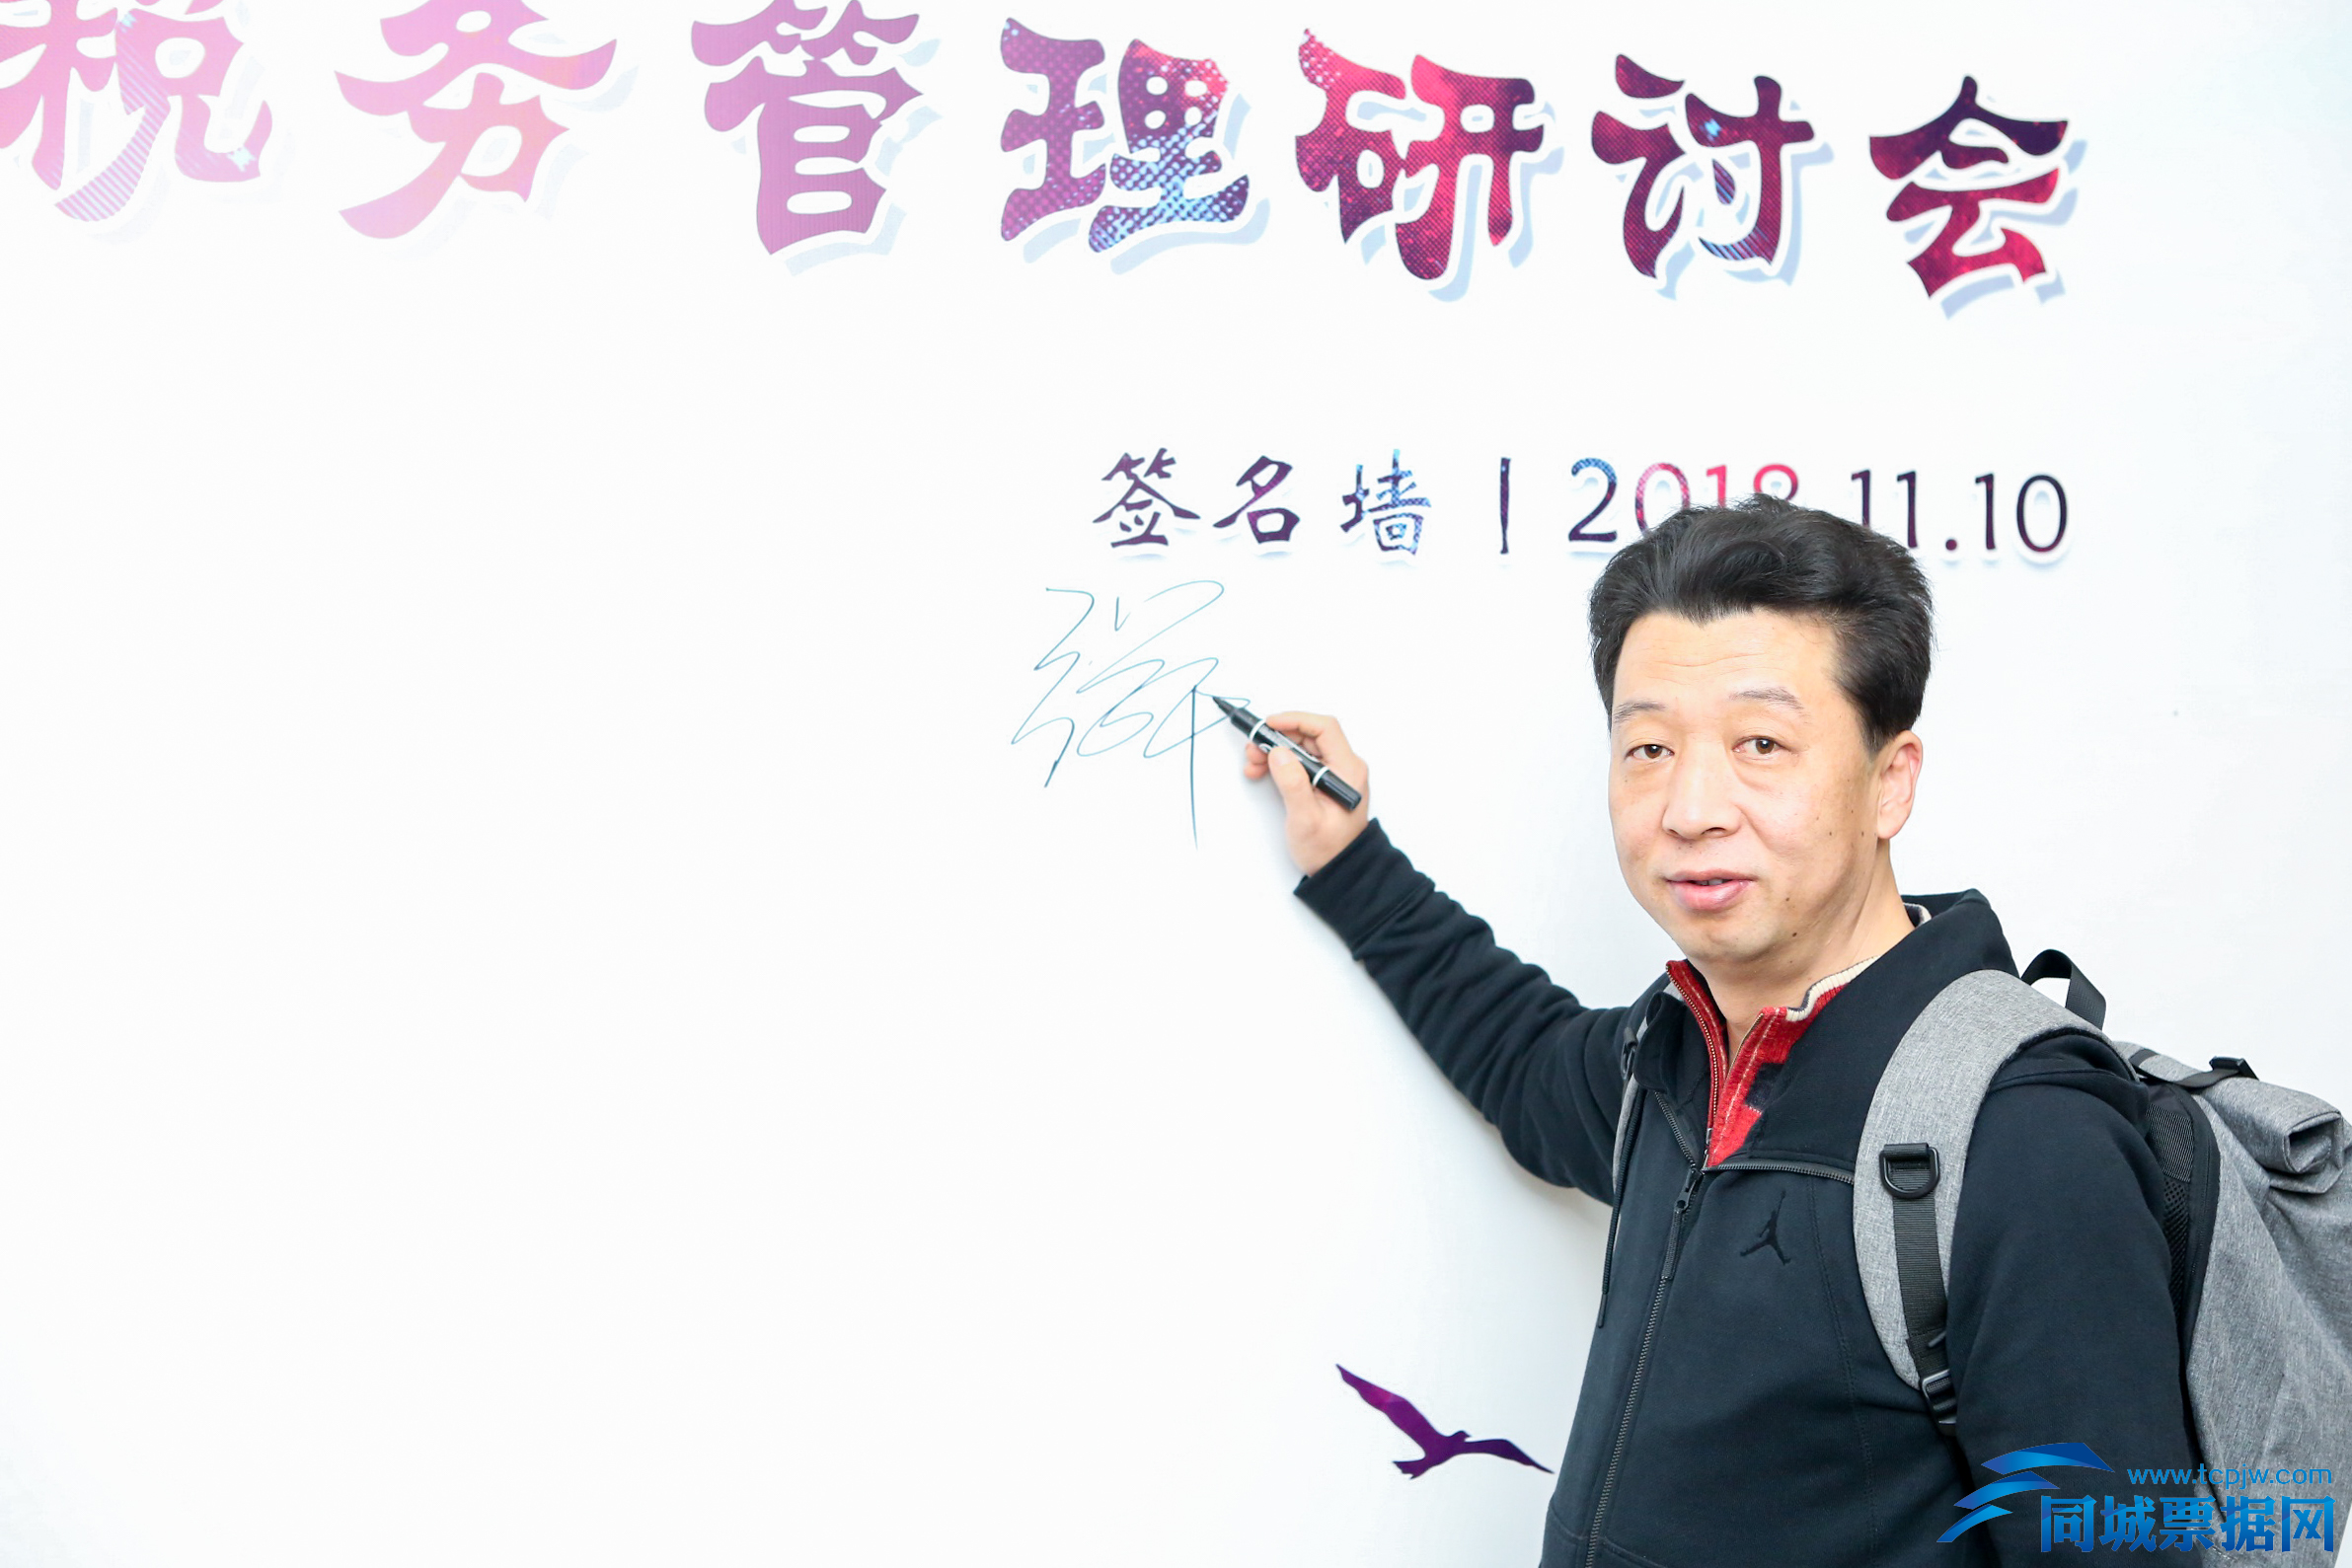 税务管理研讨会
签名墙 | 2018.11.10
www.tcpjw.com
同城票据网